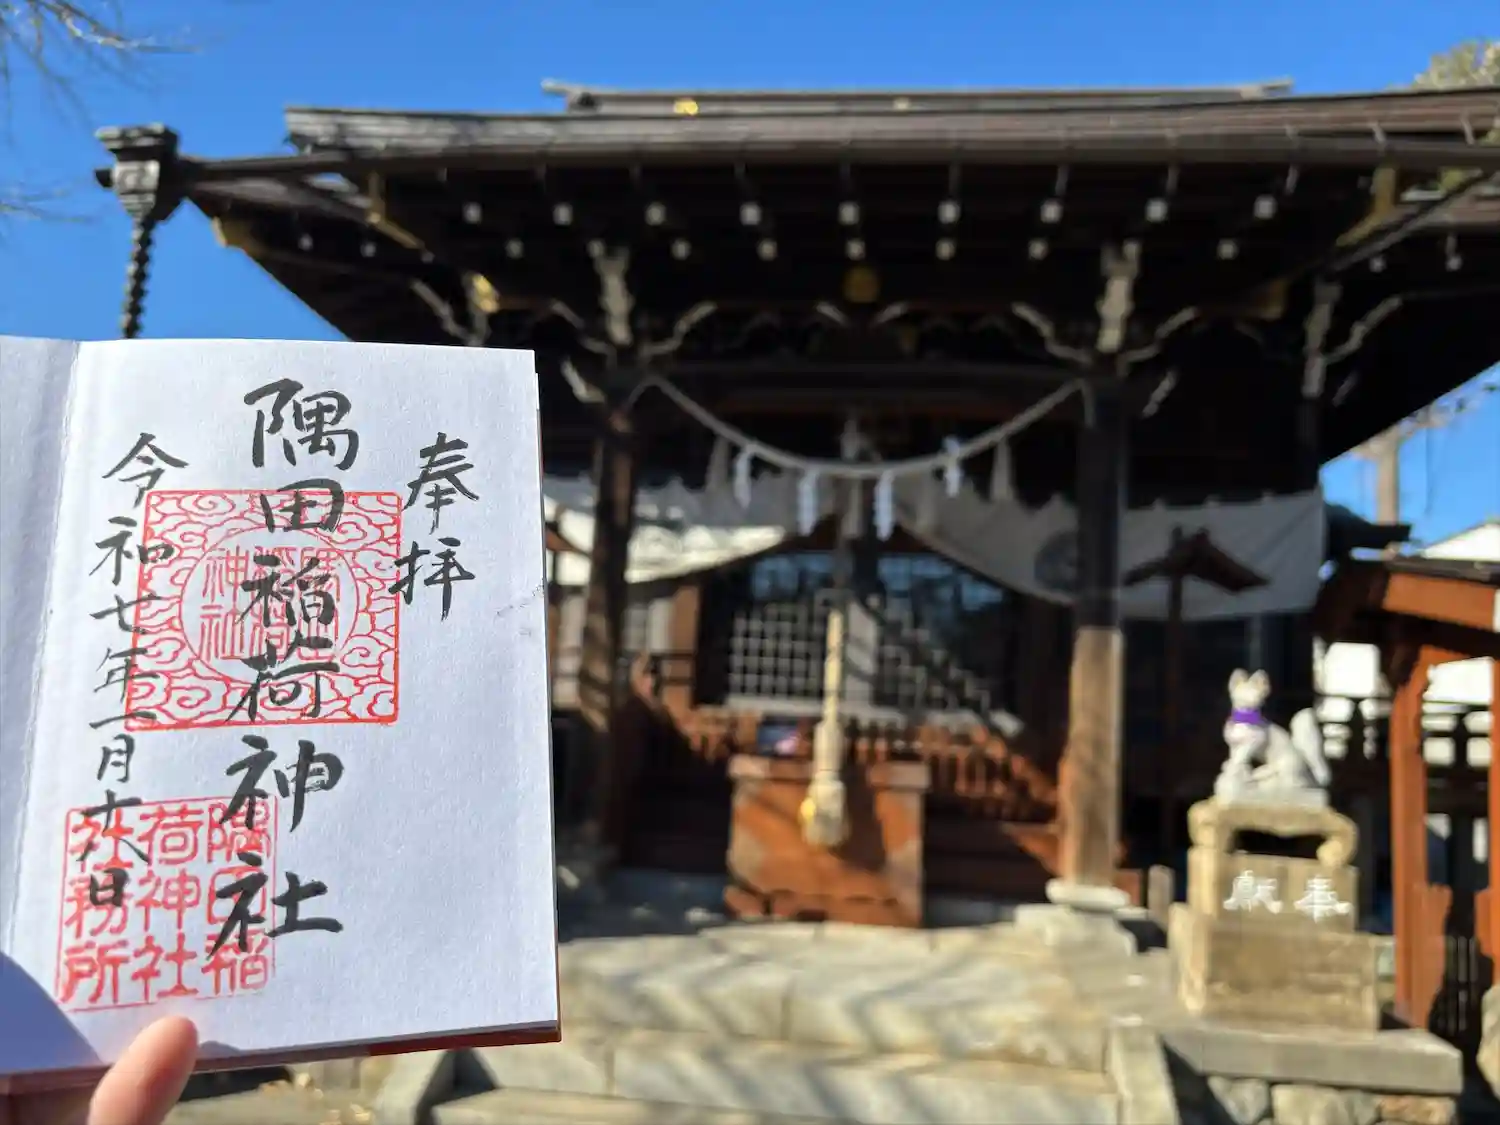 奉拝
隅田稲荷神社
令和七年一月十六日
隅田稲
荷神社
社務所
奉献